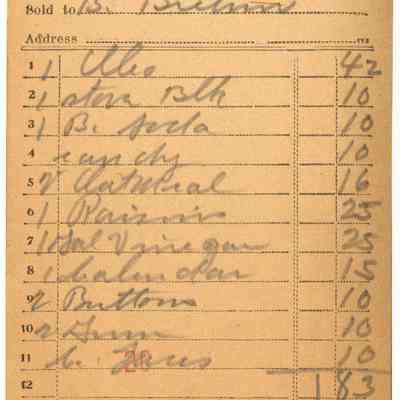 Sold to B.
Address
1 1 Oleo 42
2 1 stove Blk 10
3 1 B. Soda 10
4 candy 10
5 2 Oatmeal 16
6 1 Raisins 25
7 1 Gal Vinegar 25
8 1 Calendar 15
9 2 Buttons 10
10 2 Gum 10
11 10
12 1 83